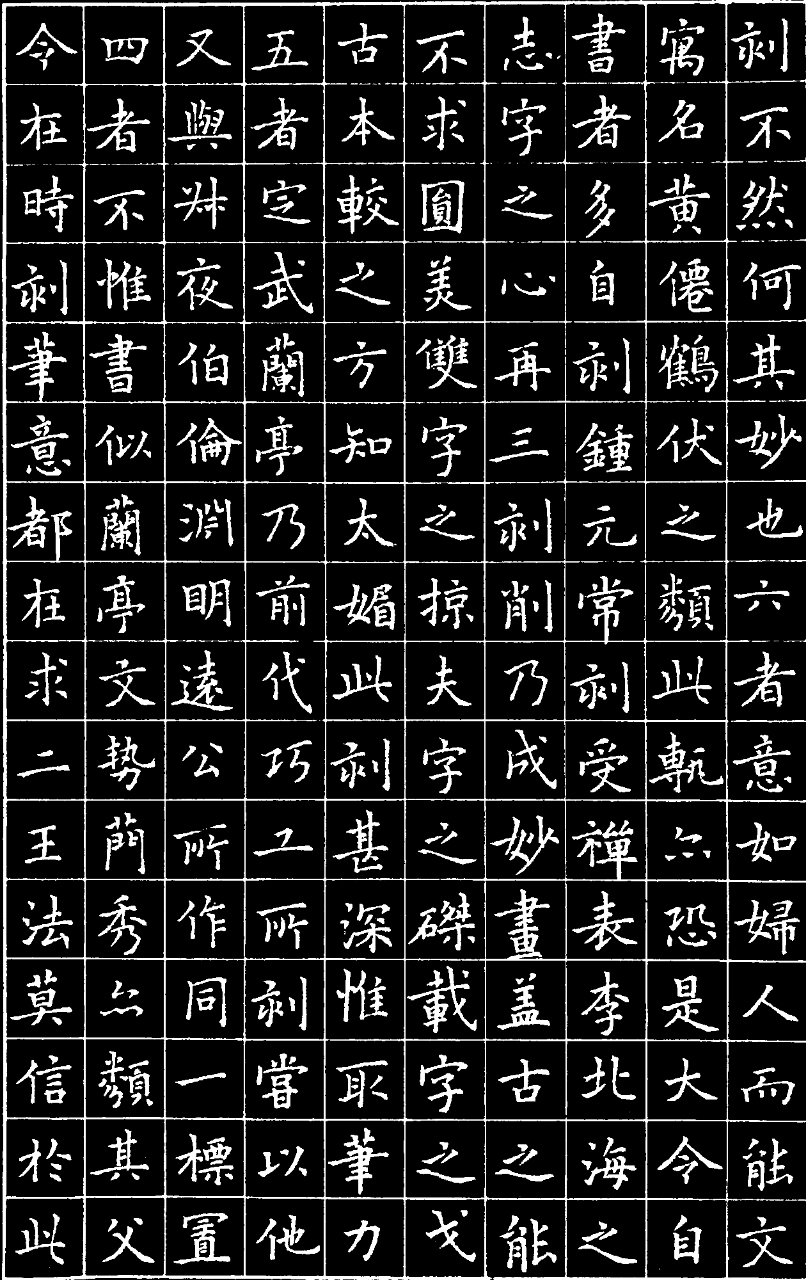 刻不然何其妙也六者意如婦人而能文
寓名黄僊鶴伏之類此甎亦恐是大令自
書者多自刻鍾元常刻受禪表李北海之
志字之心再三刻削乃成妙畫盖古之能
不求圓美雙字之掠夫字之磔載字之戈
古本較之方知太媚此刻甚深惟取筆力
五者定武蘭亭乃前代巧工所刻嘗以他
又與叔夜伯倫淵明遠公所作同一標置
四者不惟書似蘭亭文勢蕑秀亦類其父
今在時刻筆意都在求二王法莫信於此